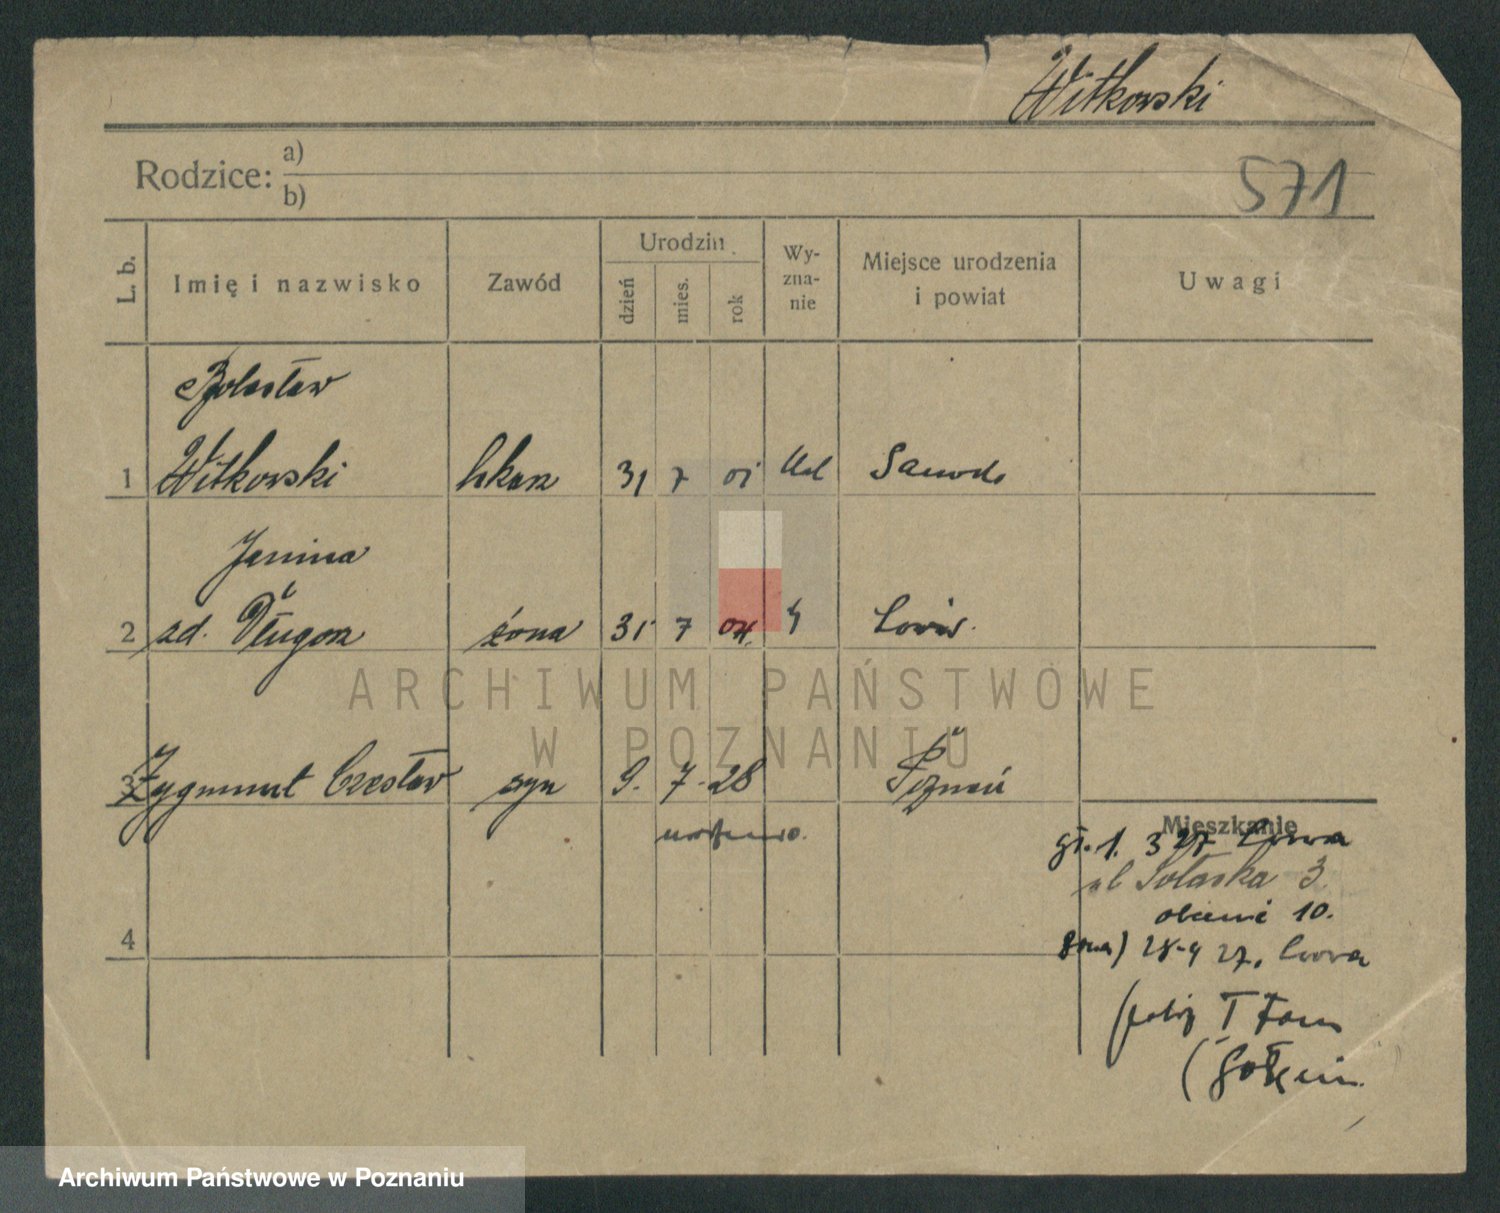 Witkowski
571
Rodzice: a)
b)
L. b.
Imię i nazwisko
Zawód
Urodzin
dzień
mies.
rok
Wy-
zna-
nie
Miejsce urodzenia
i powiat
Uwagi
Bolesław
1 Witkowski lekarz 31 7 01
Janina
2 zd. Długosz żona 31 7 04 Lwów.
3 Zygmunt Czesław syn 9. 7. 28 Poznań
Mieszkanie
gł. 1. 3 27 Lwowa
ul Sołacka 3.
obecnie 10.
żona) 28-4 27. Lwowa
4
ARCHIWUM PAŃSTWOWE
W POZNANIU
Archiwum Państwowe w Poznaniu